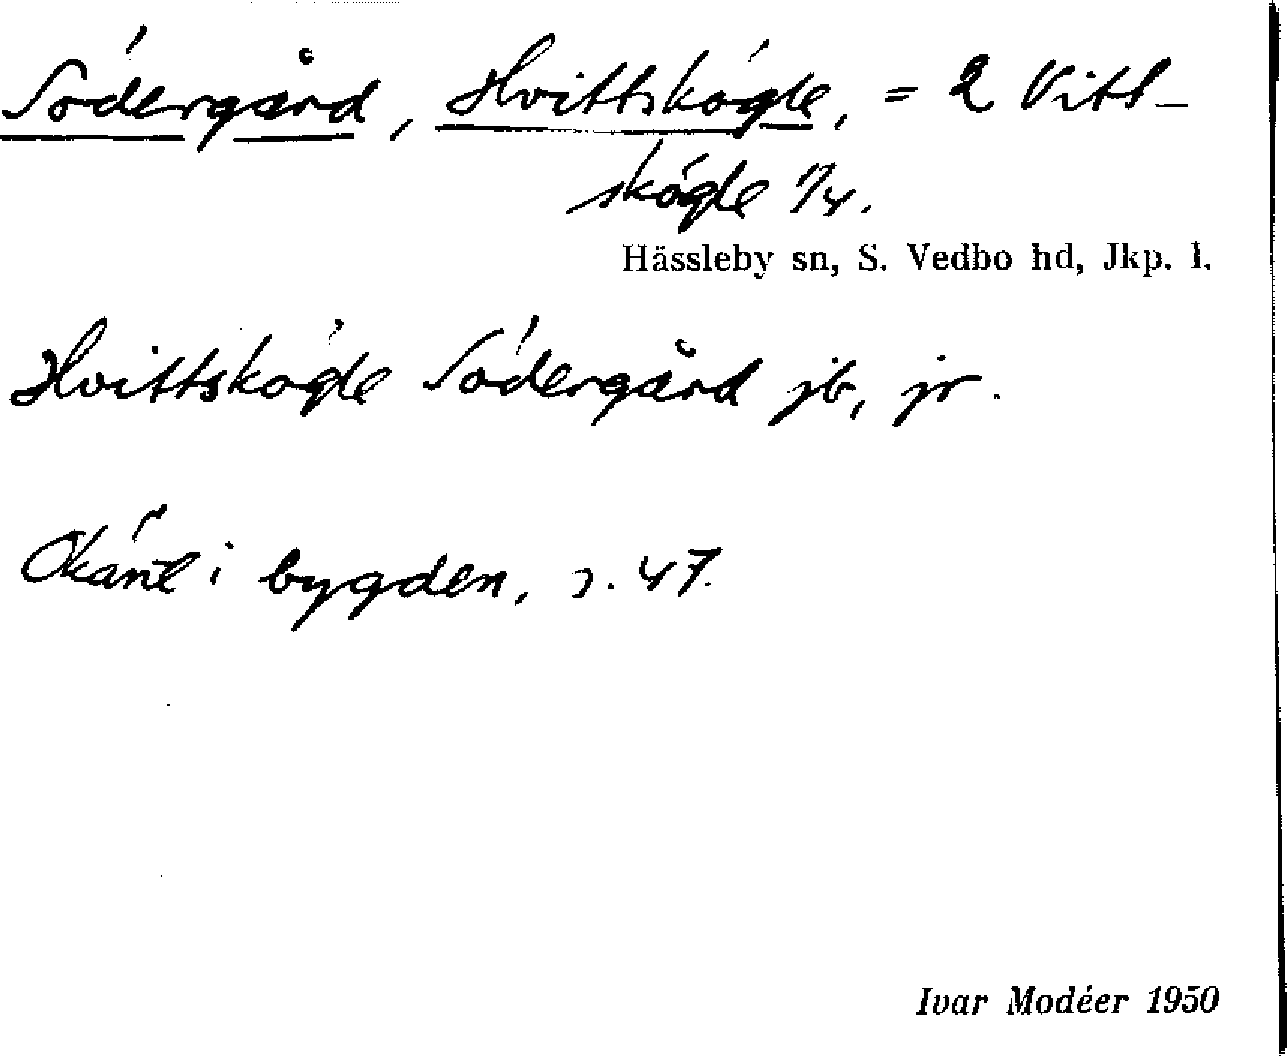 Södergård, Hvittskögle, = 2 Vitt-
skögle 1/4.
Hässleby sn, S. Vedbo hd, Jkp. l.
Hvittskögle Södergård jb, jr.
Okänt i bygden, s. 47.
Ivar Modéer 1950